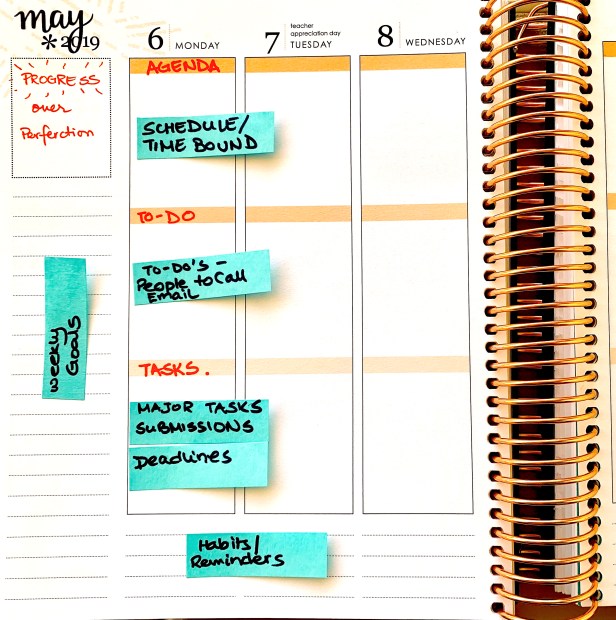 may
2019
PROGRESS
over
Perferction
6 MONDAY
AGENDA
SCHEDULE/
TIME BOUND
TO-DO
TO-DO'S -
People to Call
Email
TASKS.
MAJOR TASKS
SUBMISSIONS
Deadlines
7 TUESDAY
teacher
appreciation day
8 WEDNESDAY
weekly
Goals
Habits/
Reminders